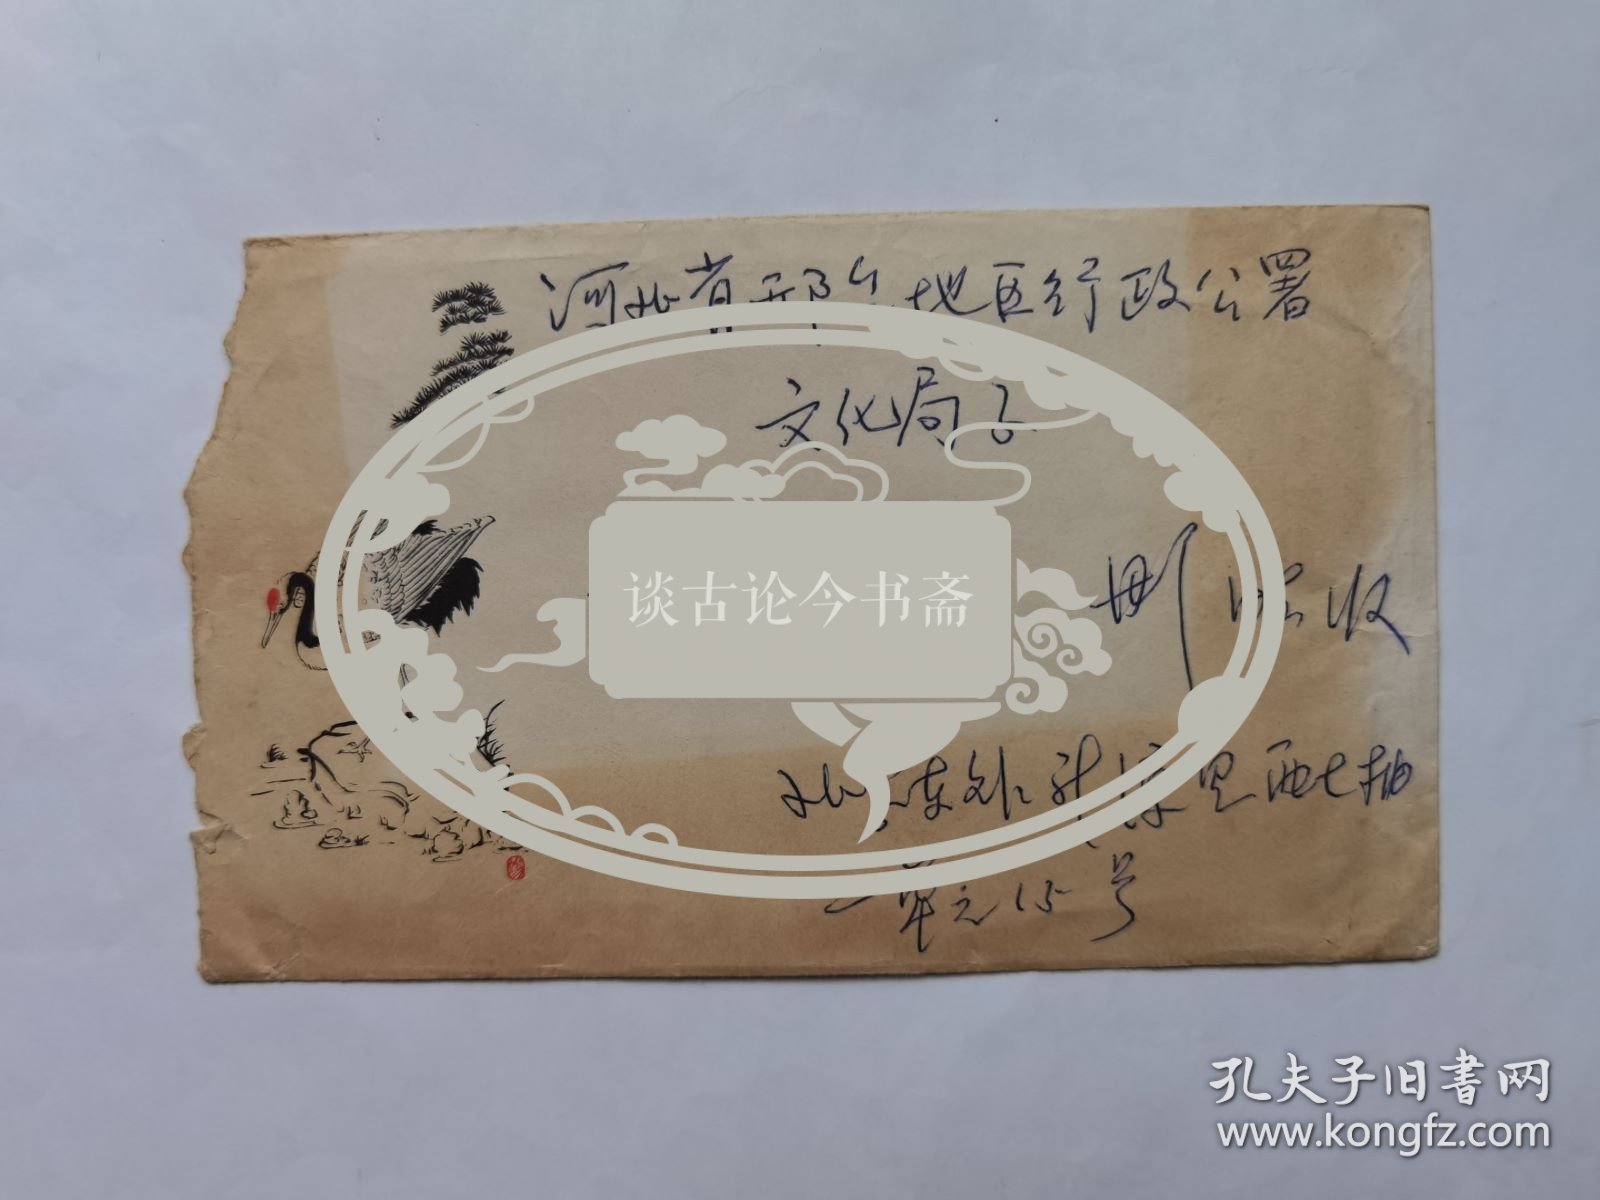 河北省邢台地区行政公署
文化局
谈古论今书斋
收
北京东外新源里西七排
一单元15号
孔夫子旧书网
www.kongfz.com